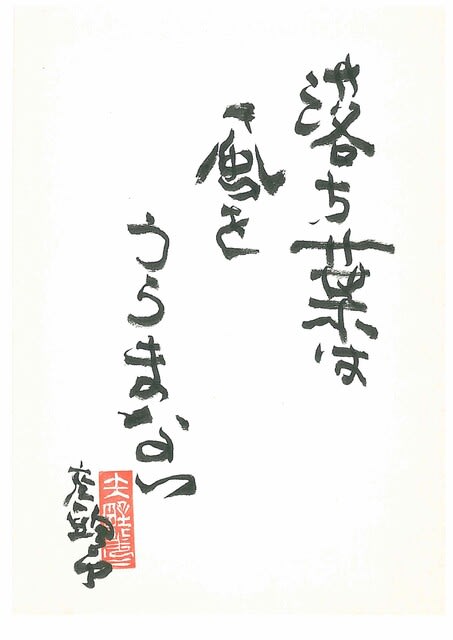 落ち葉は
風を
うらまない